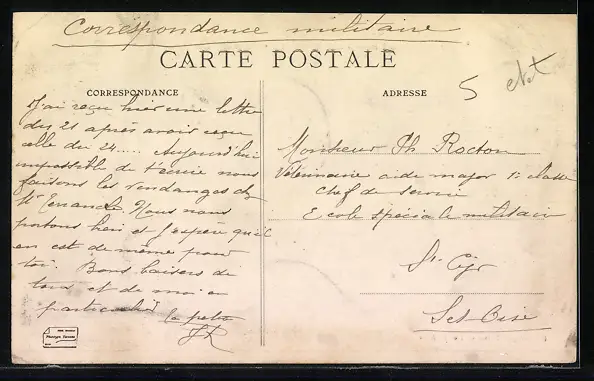 Correspondance militaire
CARTE POSTALE
CORRESPONDANCE
J'ai reçu hier une lettre
du 21 après avoir reçu
celle du 24.... Aujourd'hui
impossible de t'écrire nous
faisons les vendanges ch
Nous nous
portons bien et j'espère qu'il
en est de même pour
toi. Bons baisers de
tous et de moi en
particulier
ADRESSE
5
Monsieur Ph. Rocton
Vétérinaire aide major 1e classe
Chef de service
Ecole spéciale militaire
St Cyr
Set Oise